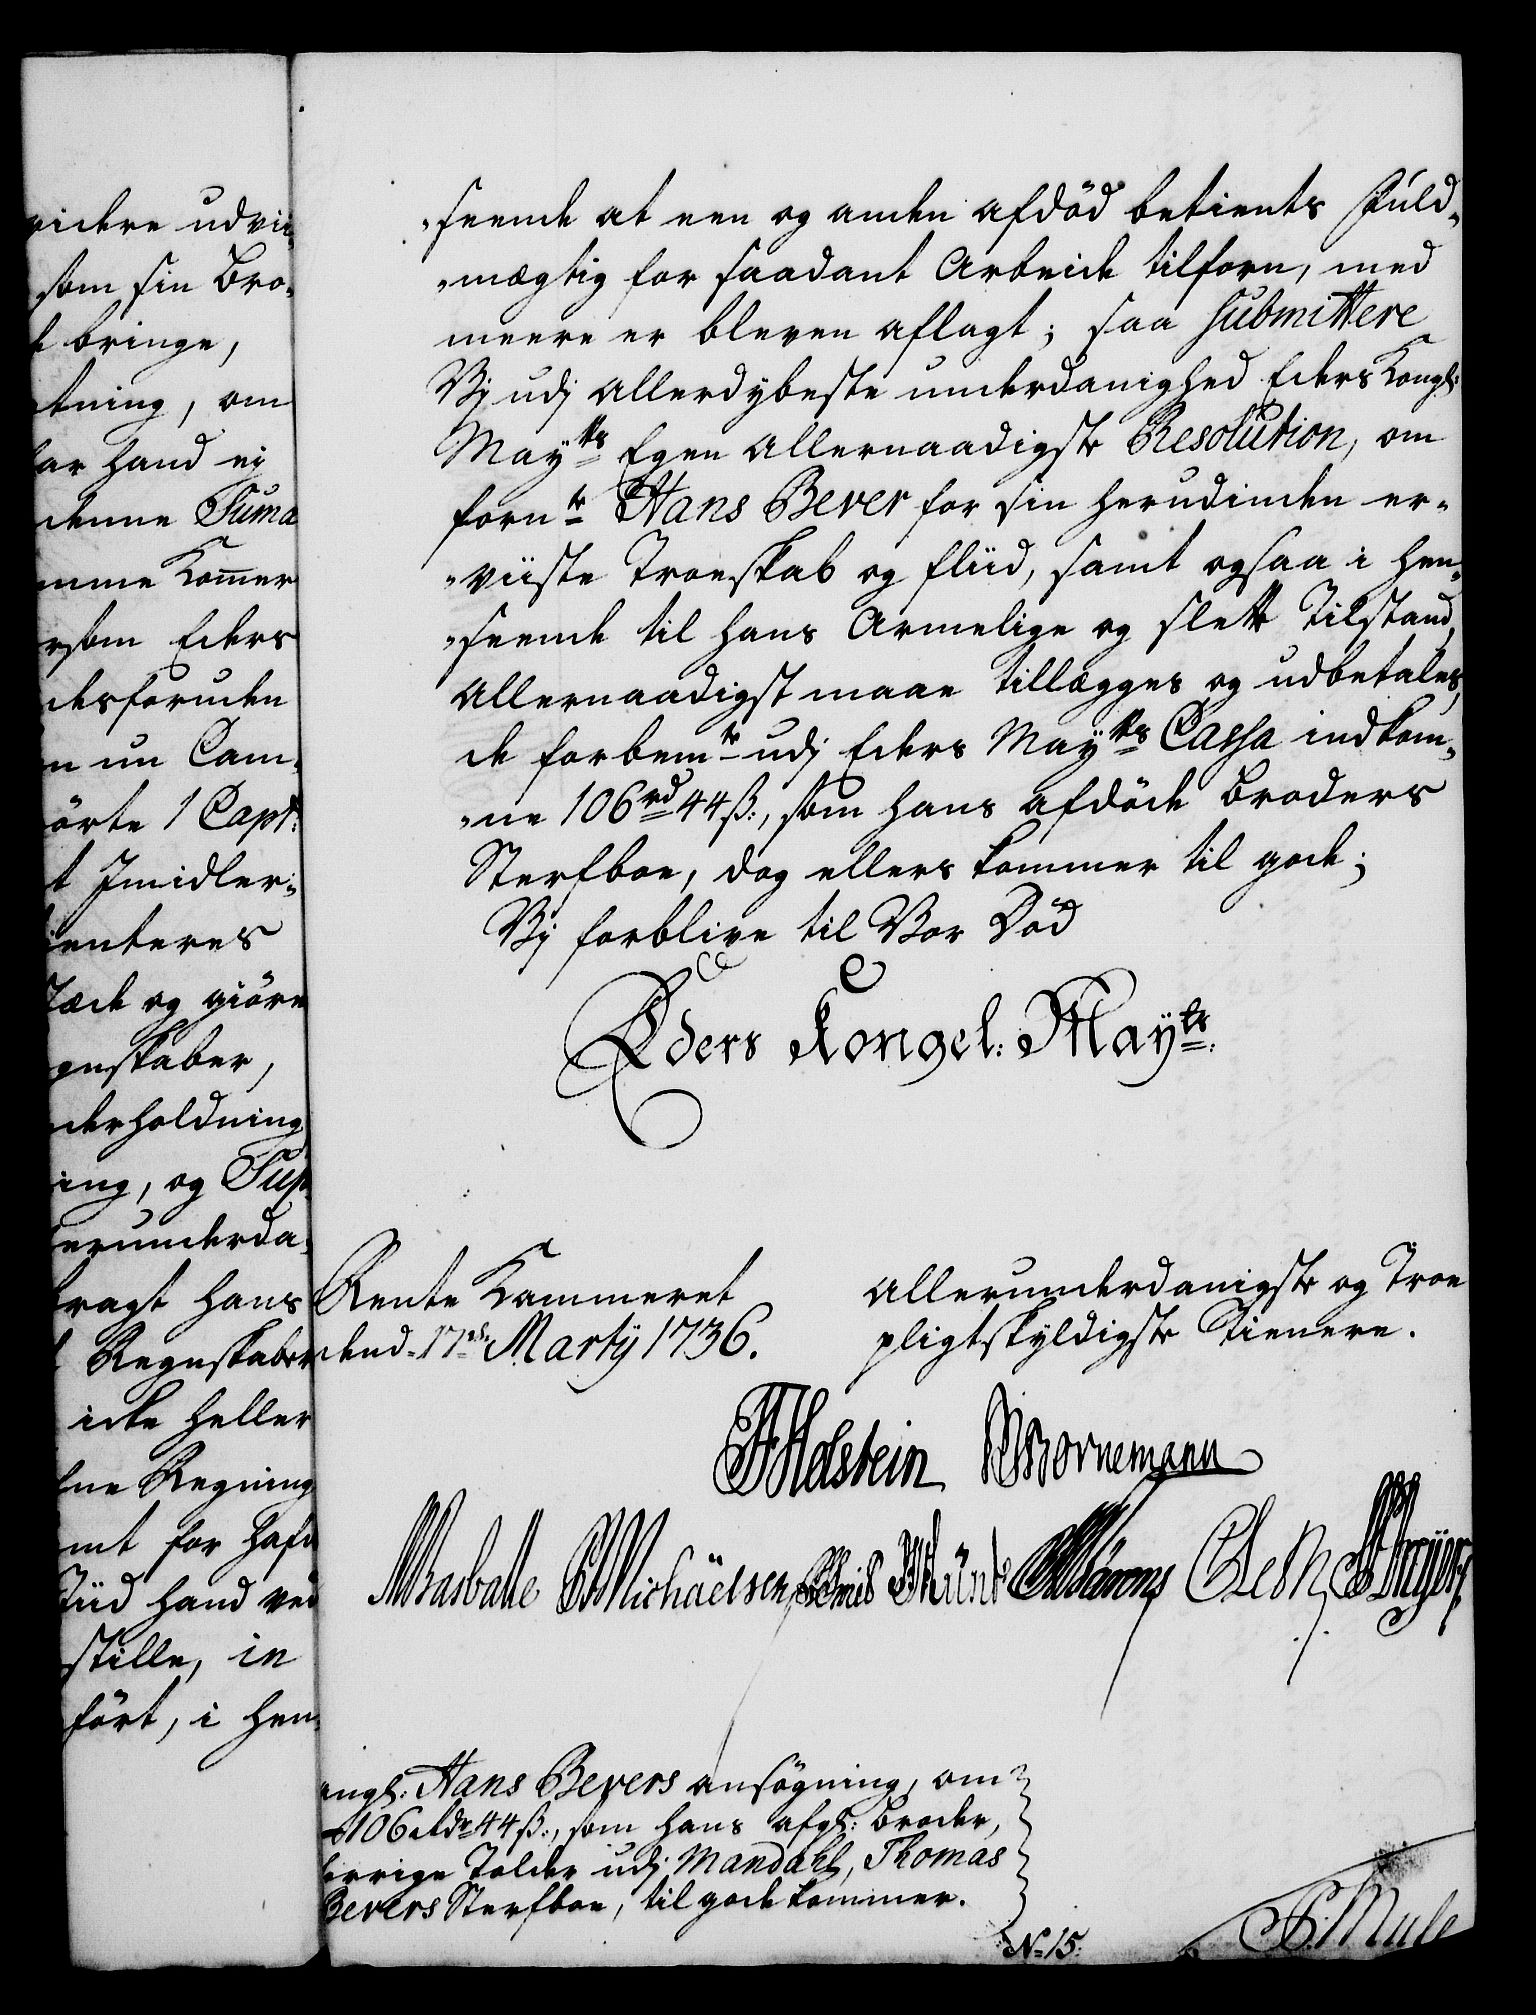 videre udvii-
som sin Bro-
bringe,
tning, om
har hand ej
denne Suma
mme Kom̅er
rsom Eders
desforuden
Cam-
örte 1 Capt:
t Imidler-
enteres
og giöre
gnskaber,
derholdning
ing, og Sup
erunderda-
bragt hans
Regnskaber
icke heller
ne Regning
mt for
Tiid hand ved
stille, in
fört, i hen-
-seende at een og anden afdöd betients Fuld-
-mægtig for saadant Arbeide tilforn, med
meere er bleven aflagt; saa submittere
Vj udj allerdybeste underdanighed Eders Kongl:
Mayts Egen allernaadigste Resolution, om
fornte Hans Bever for sin herudinden er-
-viiste Troeskab og fliid, samt ogsaa i hen-
-seende til hans Armelige og slette Tilstand,
allernaadigst maae tillægges og udbetales,
de forbemte udj Eders Mayts Cassa indkom-
-ne 106 rd 44 ß:, som hans afdöde Broders
Sterfboe, dog ellers kommer til gode;
Vj forblive til Vor Död
Eders Kongel: Mayts:
Rente Kammeret
dend 17de Martij 1736.
allerunderdanigste og Troe
pligtskyldigste Tienere.
Holstein Bornemann
Michäelsen
angl: Hans Bevers ansögning, om
106 rdr 44 ß:, som hans afgl: Broder,
forrige Tolder udj Mandahl, Thomas
Bevers Sterfboe, til gode kommer.
No 15.
Mule